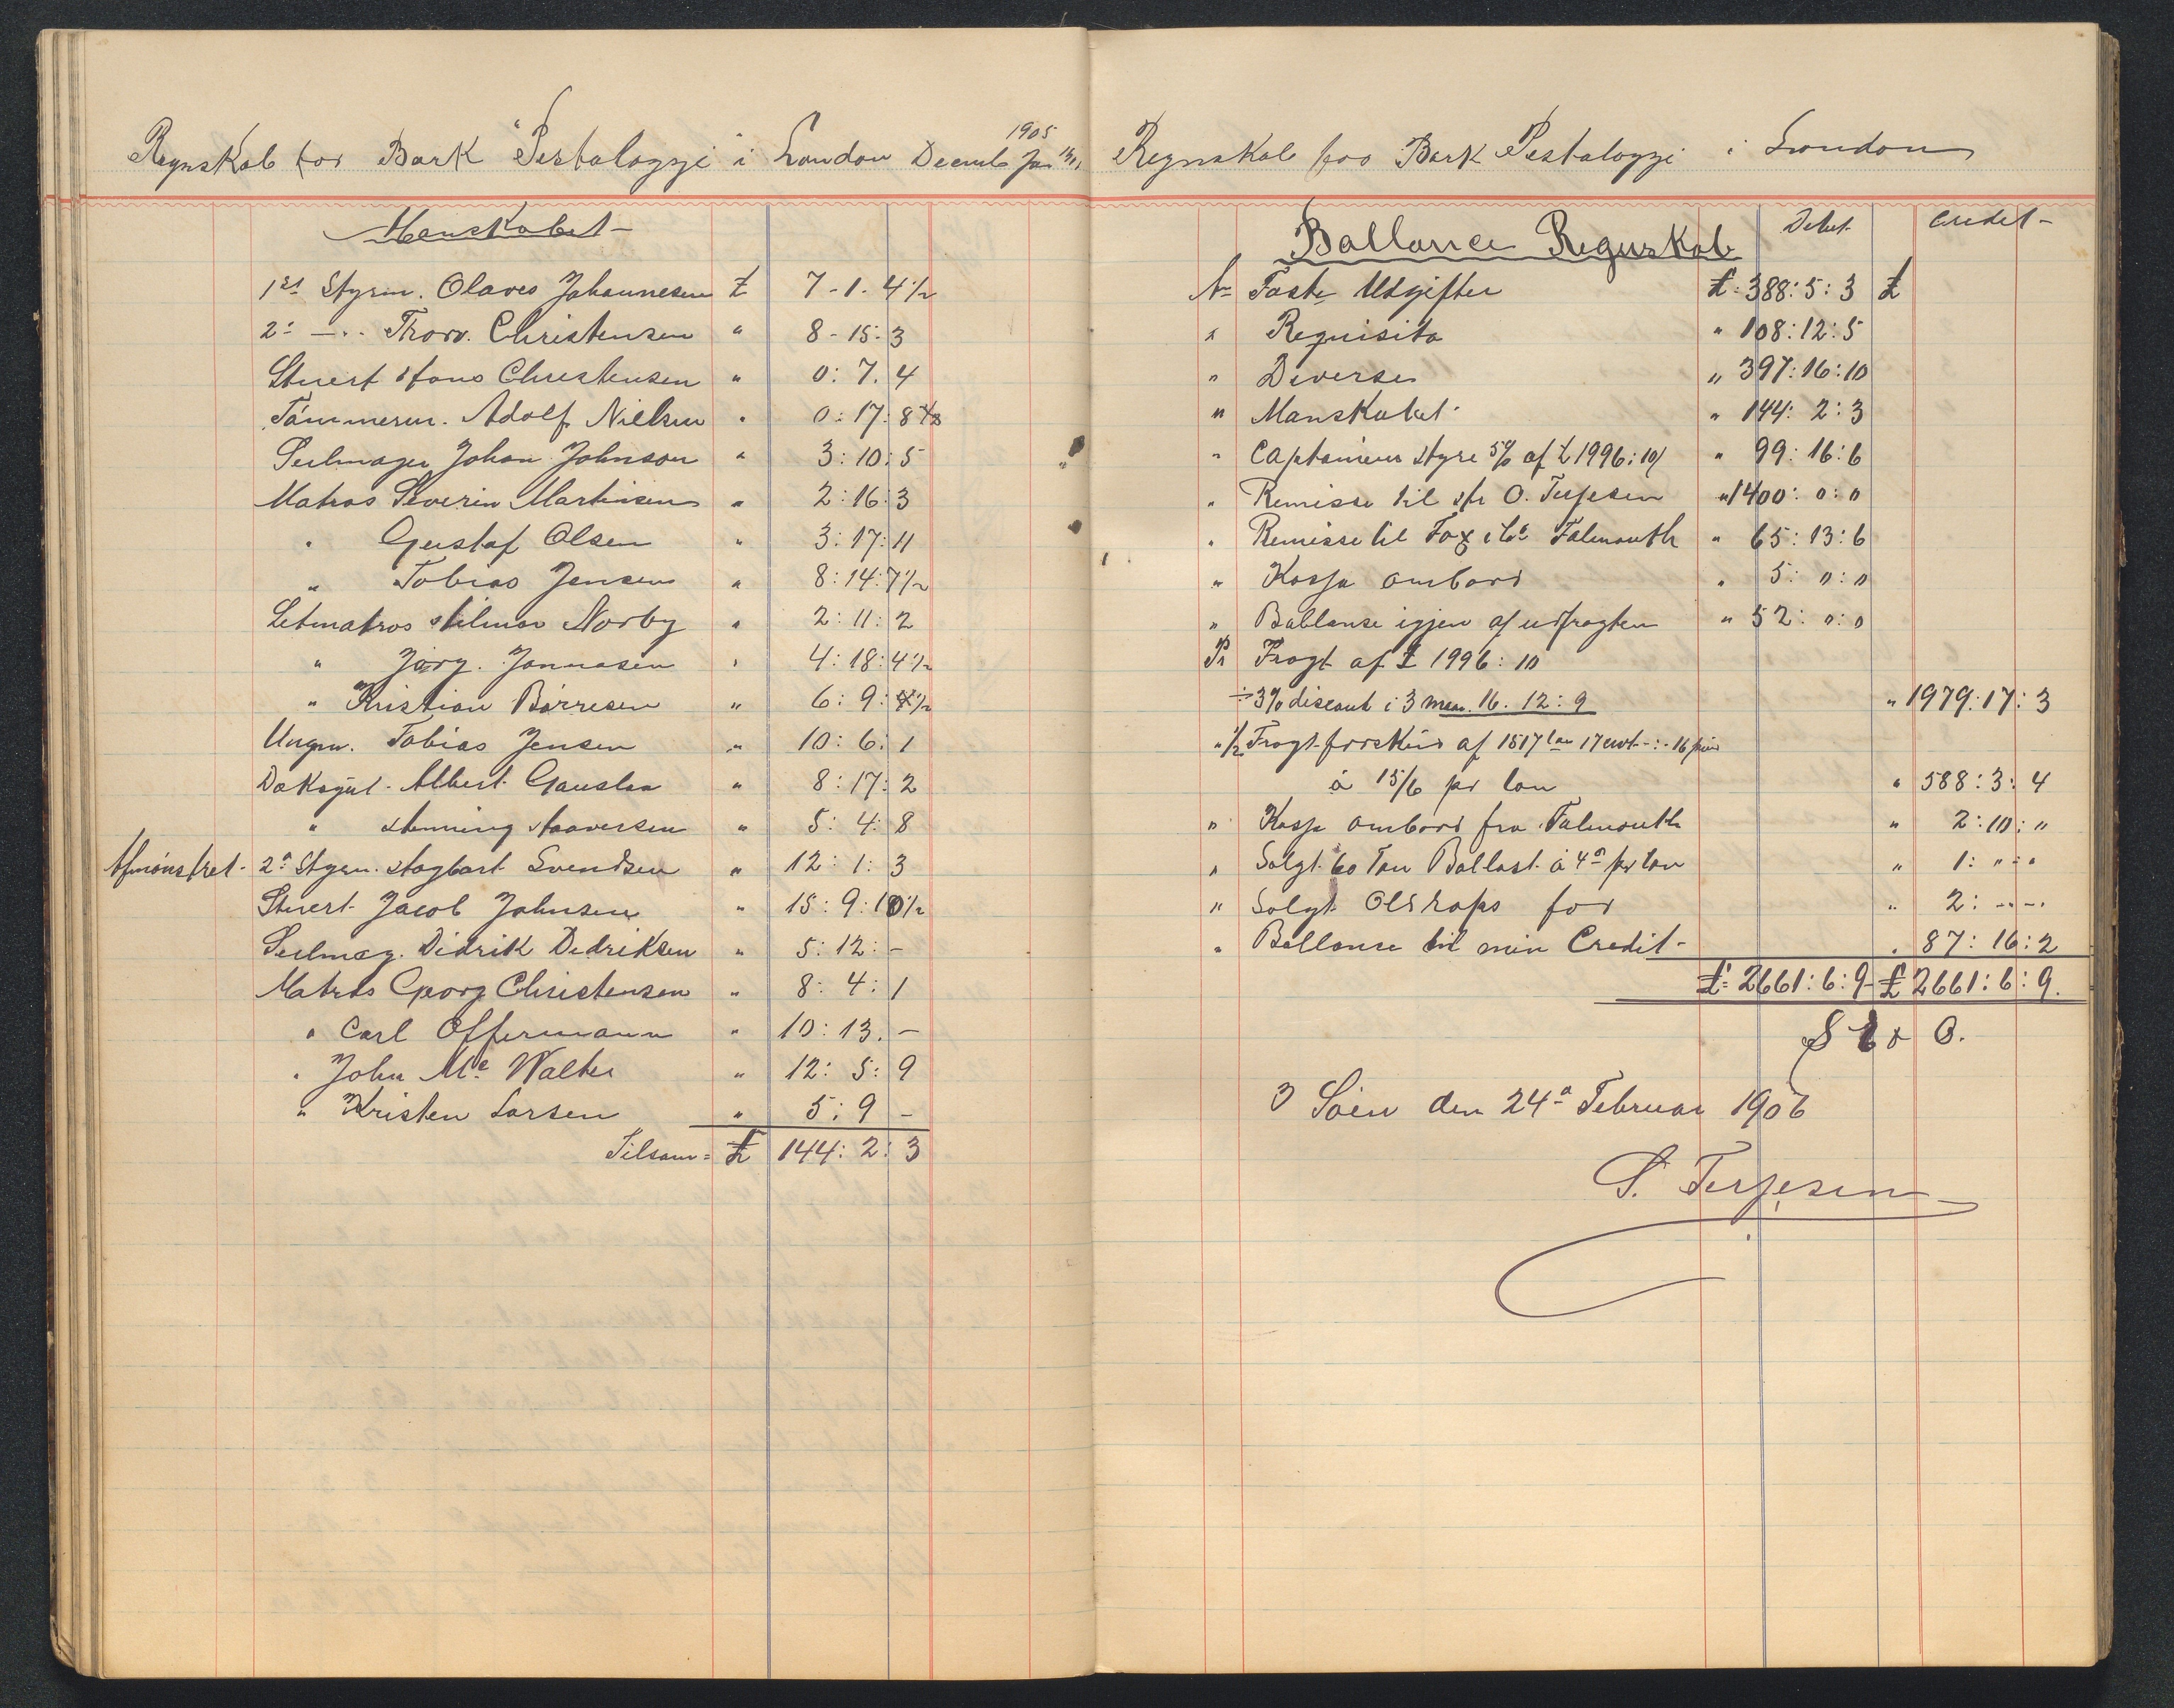 Regnskab for Bark "Pestalozzi i London Decemb 1905 Jan
Manskabet
1st Styrm. Olaves Johannesen £ 7-1-4 1/2
2: -.. Thorv. Christensen " 8-15:3
Stuert Hans Christensen " 0:7.4
Tömmerm. Adolf Nielsen " 0:17:8 1/2
Seilmager Johan Johnson " 3:10:5
Matros Severin Martinsen " 2:16:3
" Gustaf Olsen " 3:17:11
" Tobias Jensen " 8:14:7 1/2
Letmatros Hilmar Norby " 2:11:2
" Jörg. Jonnasen " 4:18:4 1/2
" Kristian Börresen " 6:9: 1/2
Ungm. Tobias Jensen " 10:6:1
Daksgut Albert Gauslaa " 8:17:2
" Henning Haaversen " 5:4:8
Afmönstret - 2n Styrm. Hagbart Svendsen " 12:1:3
Stuert Jacob Johnsen " 15:9:10 1/2
Seilmag. Didrik Dedriksen " 5:12:-
Matros Georg Christensen " 8:4:1
" Carl Offermann " 10:13.-
" John Mc Walter " 12:5:9
" Kristen Larsen " 5:9-
Tilsam = £ 144:2:3
Regnskab for Bark Pestalozzi i London
Ballance Regnskab Debet Credit-
Nr Faste Udgifter £=388:5:3 £
" Requisita " 108:12:5
" Diverse " 397:16:10
" Manskabet " 144:2:3
" Captainens Hyre 5% af £1996:10/ " 99:16:6
" Remisse til Hr O. Terjesen "1400:0:0
" Remisse til Fox & Co Falmouth " 65:13:6
" Kassa ombord " 5:":"
" Ballanse igjen af udfragten " 52:0:0
Pr Fragt af £ 1996:10
÷ 3% discout i 3 maan. 16.12:9 " 1979:17:3
" 1/2 Fragt forskud af 1517 ton 17 cwt -:-16
à 15/6 pr ton " 588:3:4
" Kassa ombord fra Falmouth " 2:10:"
" Solgt 60 Ton Ballast à 4n pr ton " 1:":"
" Solgt for " 2:--.
" Ballanse til min Credit- " 87:16:2
£=2661:6:9 £2661:6:9.
S E & O.
Söen den 24n Februar 1906
S. Terjesen